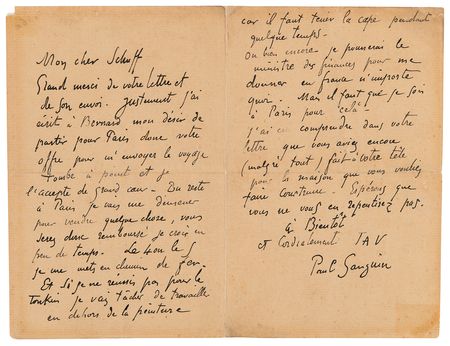 Mon cher Schuff
Grand merci de votre lettre et
de son envoi. Justement j'ai
écrit à Bernard mon désir de
partir pour Paris donc votre
offre pour m'envoyer le voyage
tombe à point et je
l'accepte de grand cœur - Du reste
à Paris je vais me demener
pour vendre quelque chose, vous
serez donc remboursé je crois en
peu de temps. Le 4 ou le 5
je me mets en chemin de fer.
Et si je ne réussis pas pour le
Tonkin je vais tâcher de travailler
en dehors de la peinture
car il faut tenir la cape pendant
quelque temps -
Ou bien encore je pousserai le
ministre des finances pour me
donner en france n'importe
quoi. Mais il faut que je sois
à Paris pour cela -
J'ai cru comprendre dans votre
lettre que vous aviez encore
(malgré tout) fait à votre tête
pour la maison que vous voulez
faire construire - Espérons que
vous ne vous en repentirez pas.
à Bientôt
et Cordialement T A V
Paul Gauguin